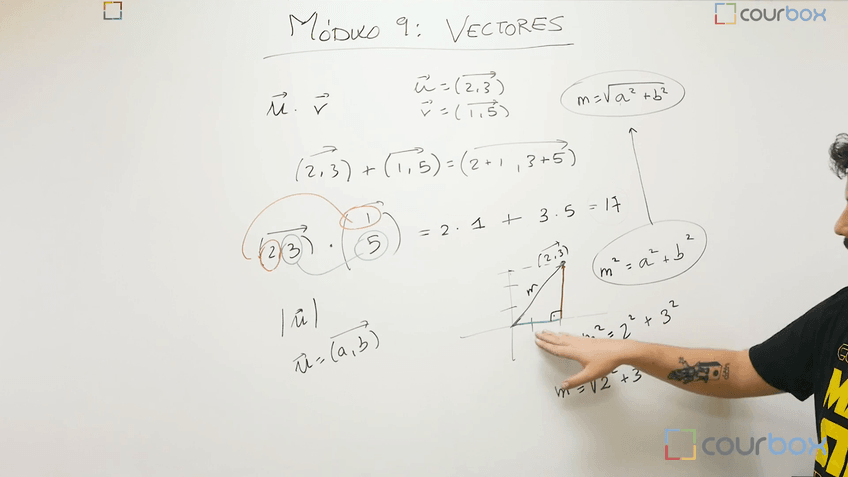 courbox
MÓDULO 9: VECTORES
u⃗ · v⃗
u⃗ = (2,3)
v⃗ = (1,5)
m = √a² + b²
(2,3) + (1,5) = (2+1, 3+5)
(2 3) · (1 5) = 2·1 + 3·5 = 17
(2,3)
m
m² = a² + b²
|u⃗|
u⃗ = (a,b)
m² = 2² + 3²
m = √2² + 3
courbox